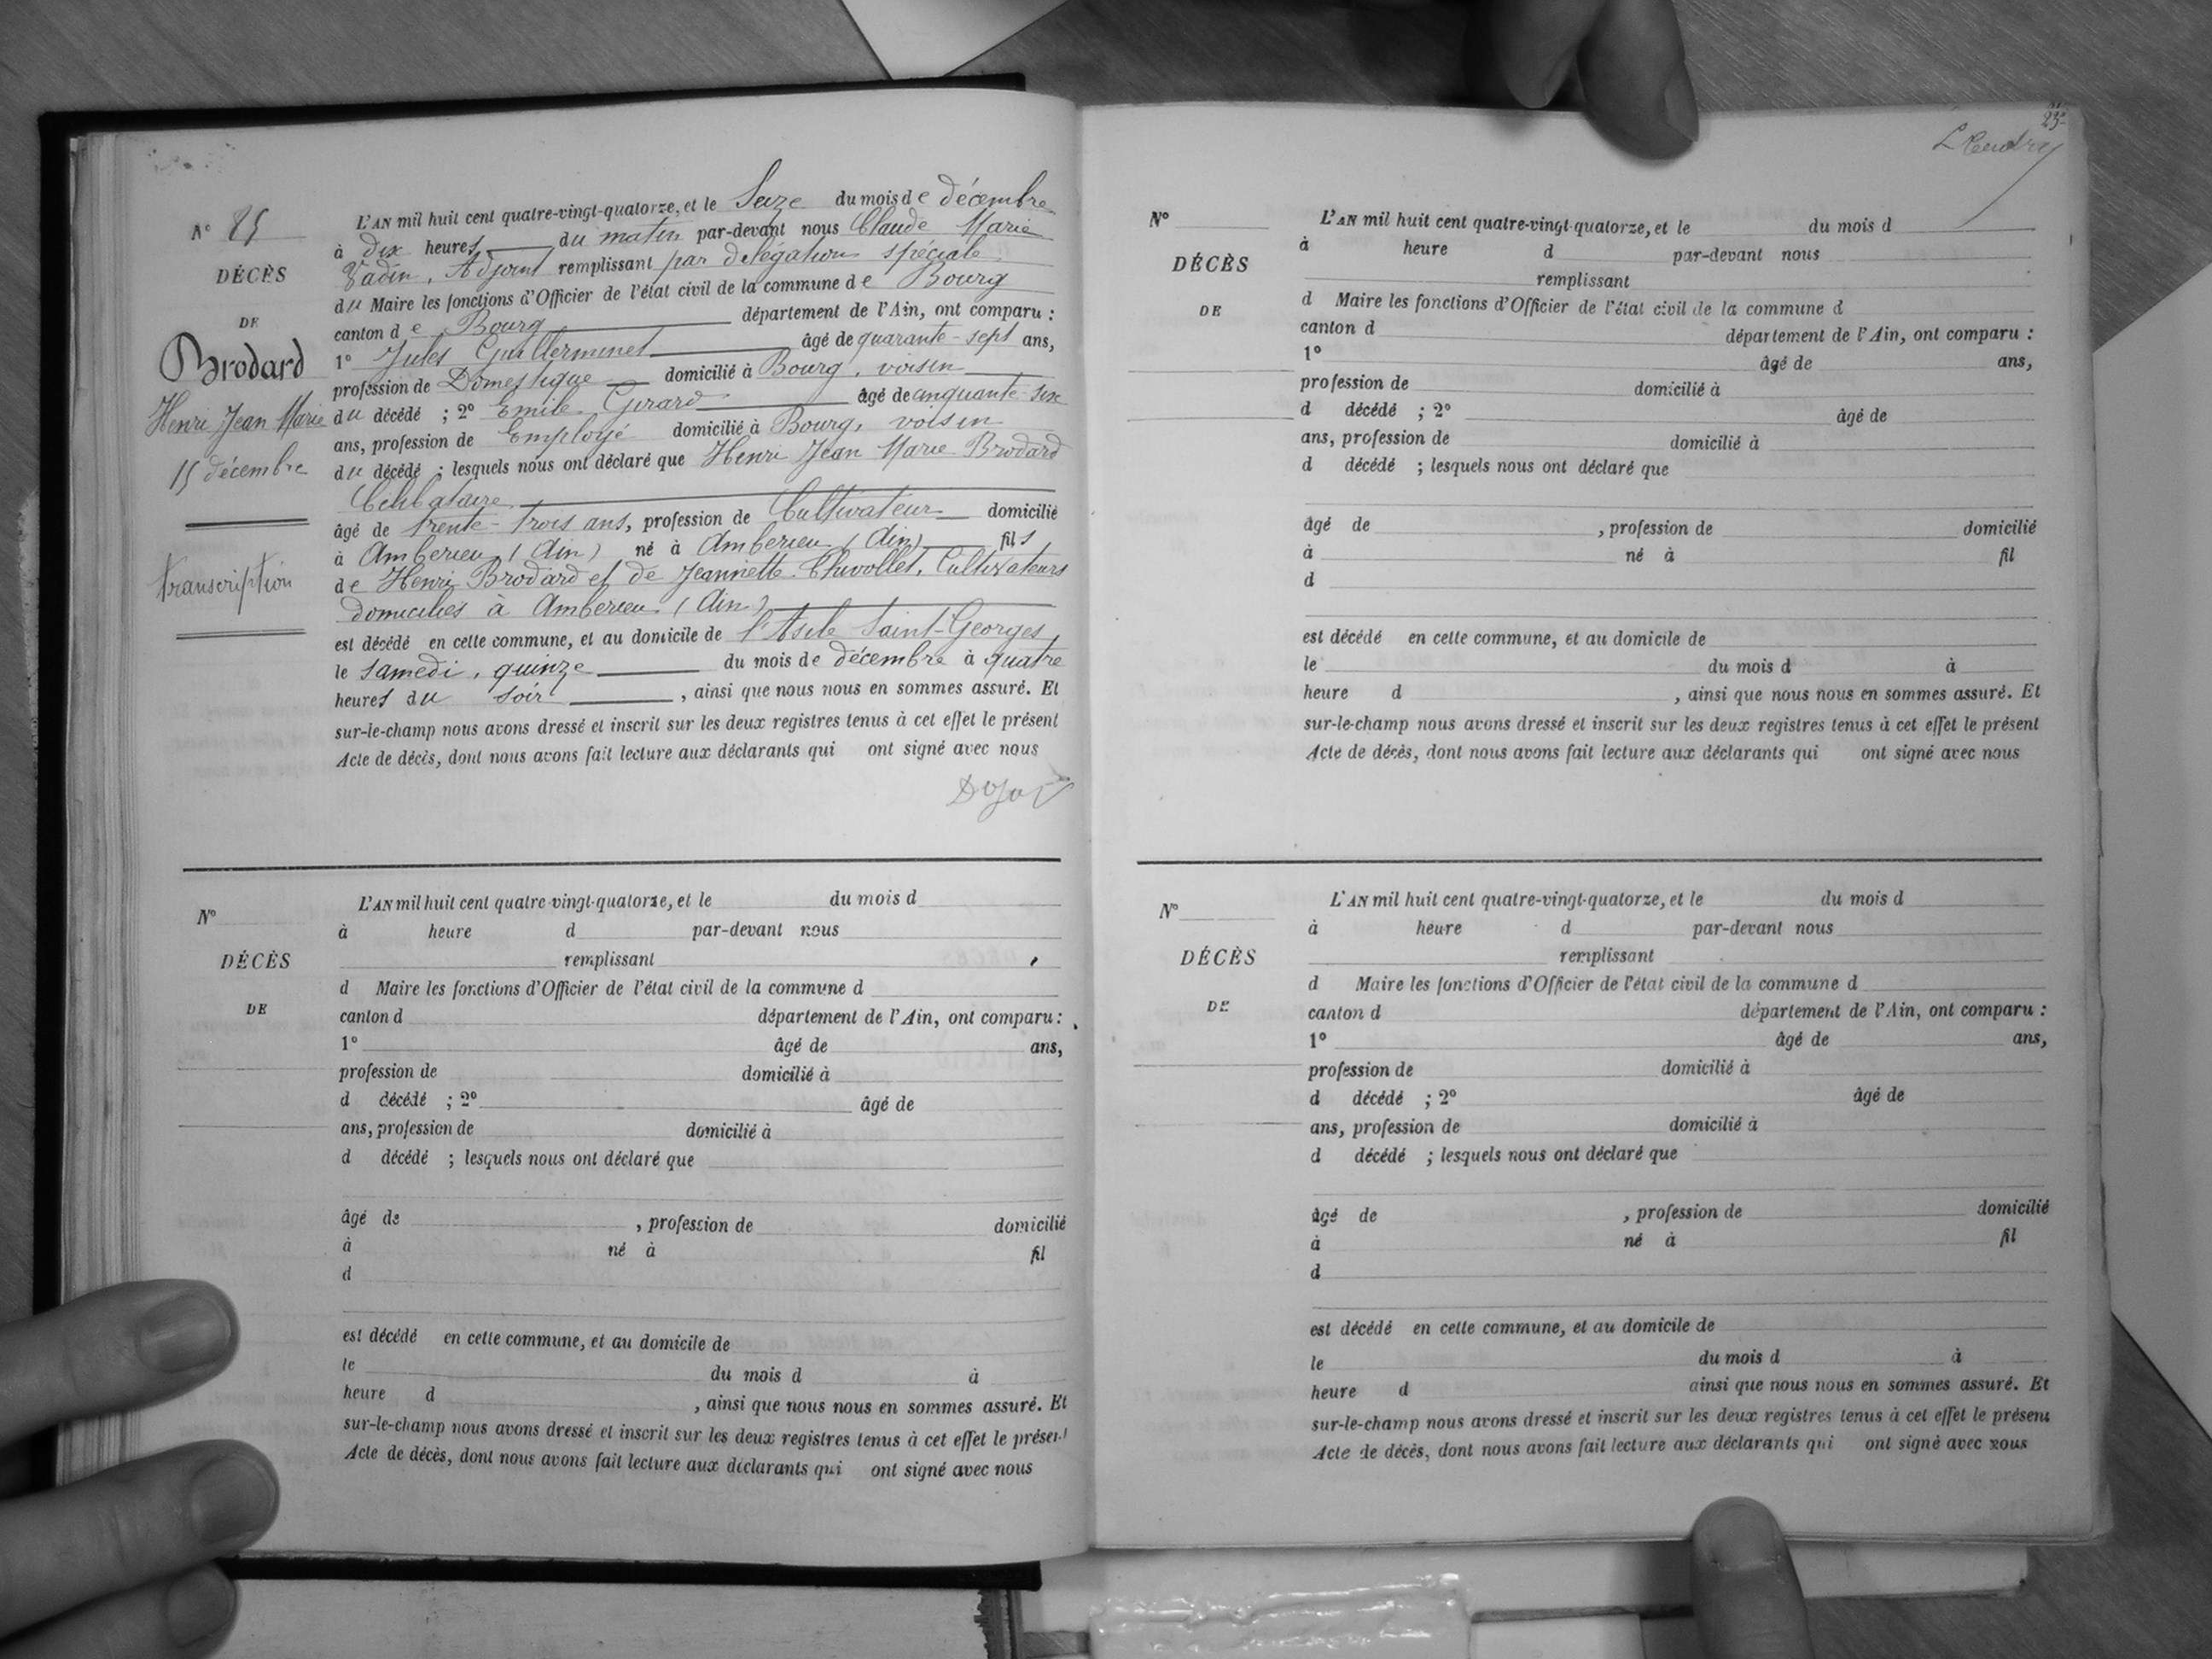 N° 85
DÉCÈS
DE
Brodard
Henri Jean Marie
15 décembre
transcription
L'AN mil huit cent quatre-vingt-quatorze, et le Seize du mois de décembre
à dix heures du matin par-devant nous Claude Marie
Vadin, Adjoint remplissant par délégation spéciale
du Maire les fonctions d'Officier de l'état civil de la commune de Bourg
canton de Bourg département de l'Ain, ont comparu :
1° Jules Guillerminet âgé de quarante-sept ans,
profession de Domestique domicilié à Bourg, voisin
du décédé ; 2° Emile Girard âgé de cinquante-six
ans, profession de Employé domicilié à Bourg, voisin
du décédé ; lesquels nous ont déclaré que Henri Jean Marie Brodard
Célibataire
âgé de trente-trois ans, profession de Cultivateur domicilié
à Amberieu (Ain) né à Amberieu (Ain) fils
de Henri Brodard et de Jeannette Chuvollet, Cultivateurs
domiciliés à Amberieu (Ain)
est décédé en cette commune, et au domicile de l'Asile Saint-Georges,
le samedi, quinze du mois de décembre à quatre
heures du soir , ainsi que nous nous en sommes assuré. Et
sur-le-champ nous avons dressé et inscrit sur les deux registres tenus à cet effet le présent
Acte de décès, dont nous avons fait lecture aux déclarants qui ont signé avec nous
N°
DÉCÈS
DE
L'AN mil huit cent quatre-vingt-quatorze, et le du mois d
à heure d par-devant nous
remplissant
d Maire les fonctions d'Officier de l'état civil de la commune d
canton d département de l'Ain, ont comparu :
1° âgé de ans,
profession de domicilié à
d décédé ; 2° âgé de
ans, profession de domicilié à
d décédé ; lesquels nous ont déclaré que
âgé de , profession de domicilié
à né à fil
d
est décédé en cette commune, et au domicile de
le du mois d à
heure d , ainsi que nous nous en sommes assuré. Et
sur-le-champ nous avons dressé et inscrit sur les deux registres tenus à cet effet le présent
Acte de décès, dont nous avons fait lecture aux déclarants qui ont signé avec nous
23
N°
DÉCÈS
DE
L'AN mil huit cent quatre-vingt-quatorze, et le du mois d
à heure d par-devant nous
remplissant
d Maire les fonctions d'Officier de l'état civil de la commune d
canton d département de l'Ain, ont comparu :
1° âgé de ans,
profession de domicilié à
d décédé ; 2° âgé de
ans, profession de domicilié à
d décédé ; lesquels nous ont déclaré que
âgé de , profession de domicilié
à né à fil
d
est décédé en cette commune, et au domicile de
le du mois d à
heure d , ainsi que nous nous en sommes assuré. Et
sur-le-champ nous avons dressé et inscrit sur les deux registres tenus à cet effet le présent
Acte de décès, dont nous avons fait lecture aux déclarants qui ont signé avec nous
N°
DÉCÈS
DE
L'AN mil huit cent quatre-vingt-quatorze, et le du mois d
à heure d par-devant nous
remplissant
d Maire les fonctions d'Officier de l'état civil de la commune d
canton d département de l'Ain, ont comparu :
1° âgé de ans,
profession de domicilié à
d décédé ; 2° âgé de
ans, profession de domicilié à
d décédé ; lesquels nous ont déclaré que
âgé de , profession de domicilié
à né à fil
d
est décédé en cette commune, et au domicile de
le du mois d à
heure d ainsi que nous nous en sommes assuré. Et
sur-le-champ nous avons dressé et inscrit sur les deux registres tenus à cet effet le présent
Acte de décès, dont nous avons fait lecture aux déclarants qui ont signé avec nous